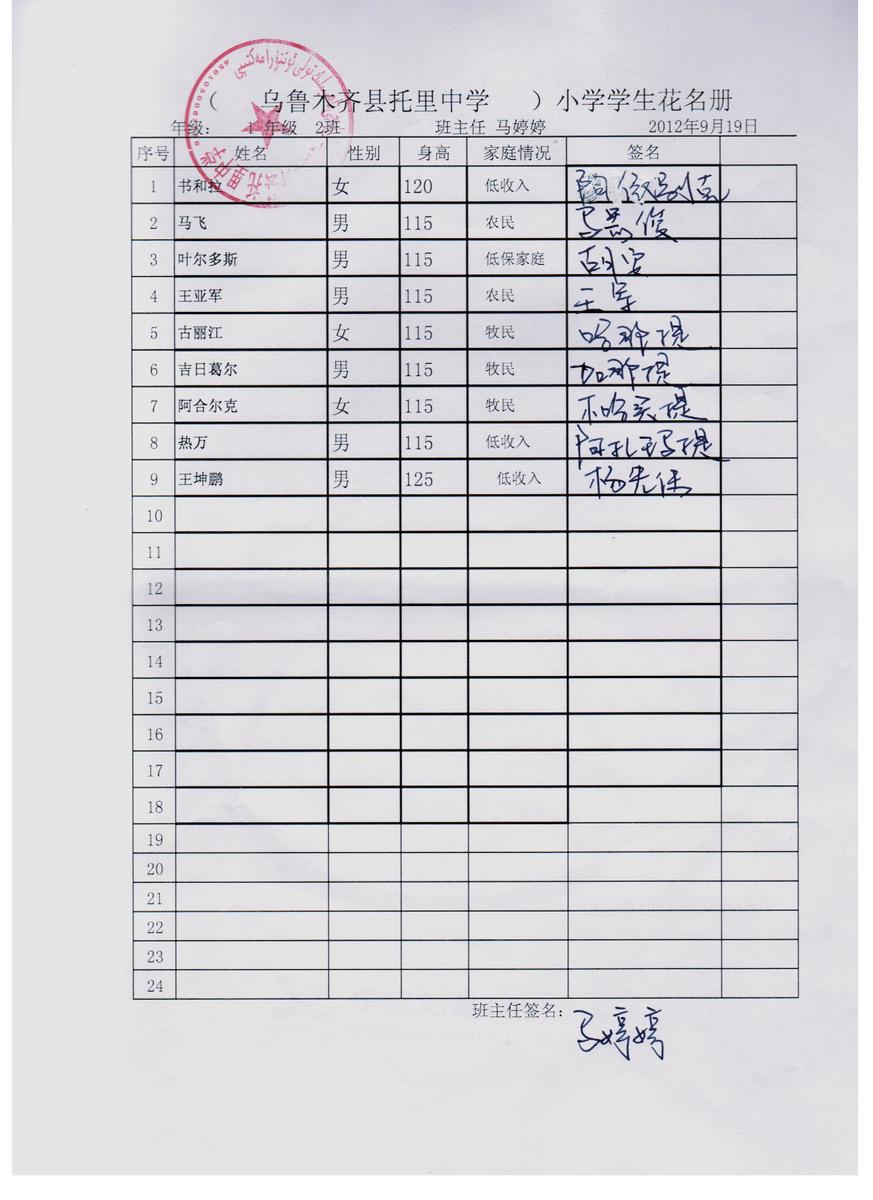 （ 乌鲁木齐县托里中学 ）小学学生花名册
年级： 1 年级 2班 班主任 马婷婷 2012年9月19日
序号 姓名 性别 身高 家庭情况 签名
1 书和拉 女 120 低收入
2 马飞 男 115 农民
3 叶尔多斯 男 115 低保家庭 胡安
4 王亚军 男 115 农民 王军
5 古丽江 女 115 牧民 哈那提
6 吉日葛尔 男 115 牧民 加那提
7 阿合尔克 女 115 牧民
8 热万 男 115 低收入
9 王坤鹏 男 125 低收入
10
11
12
13
14
15
16
17
18
19
20
21
22
23
24
班主任签名： 马婷婷